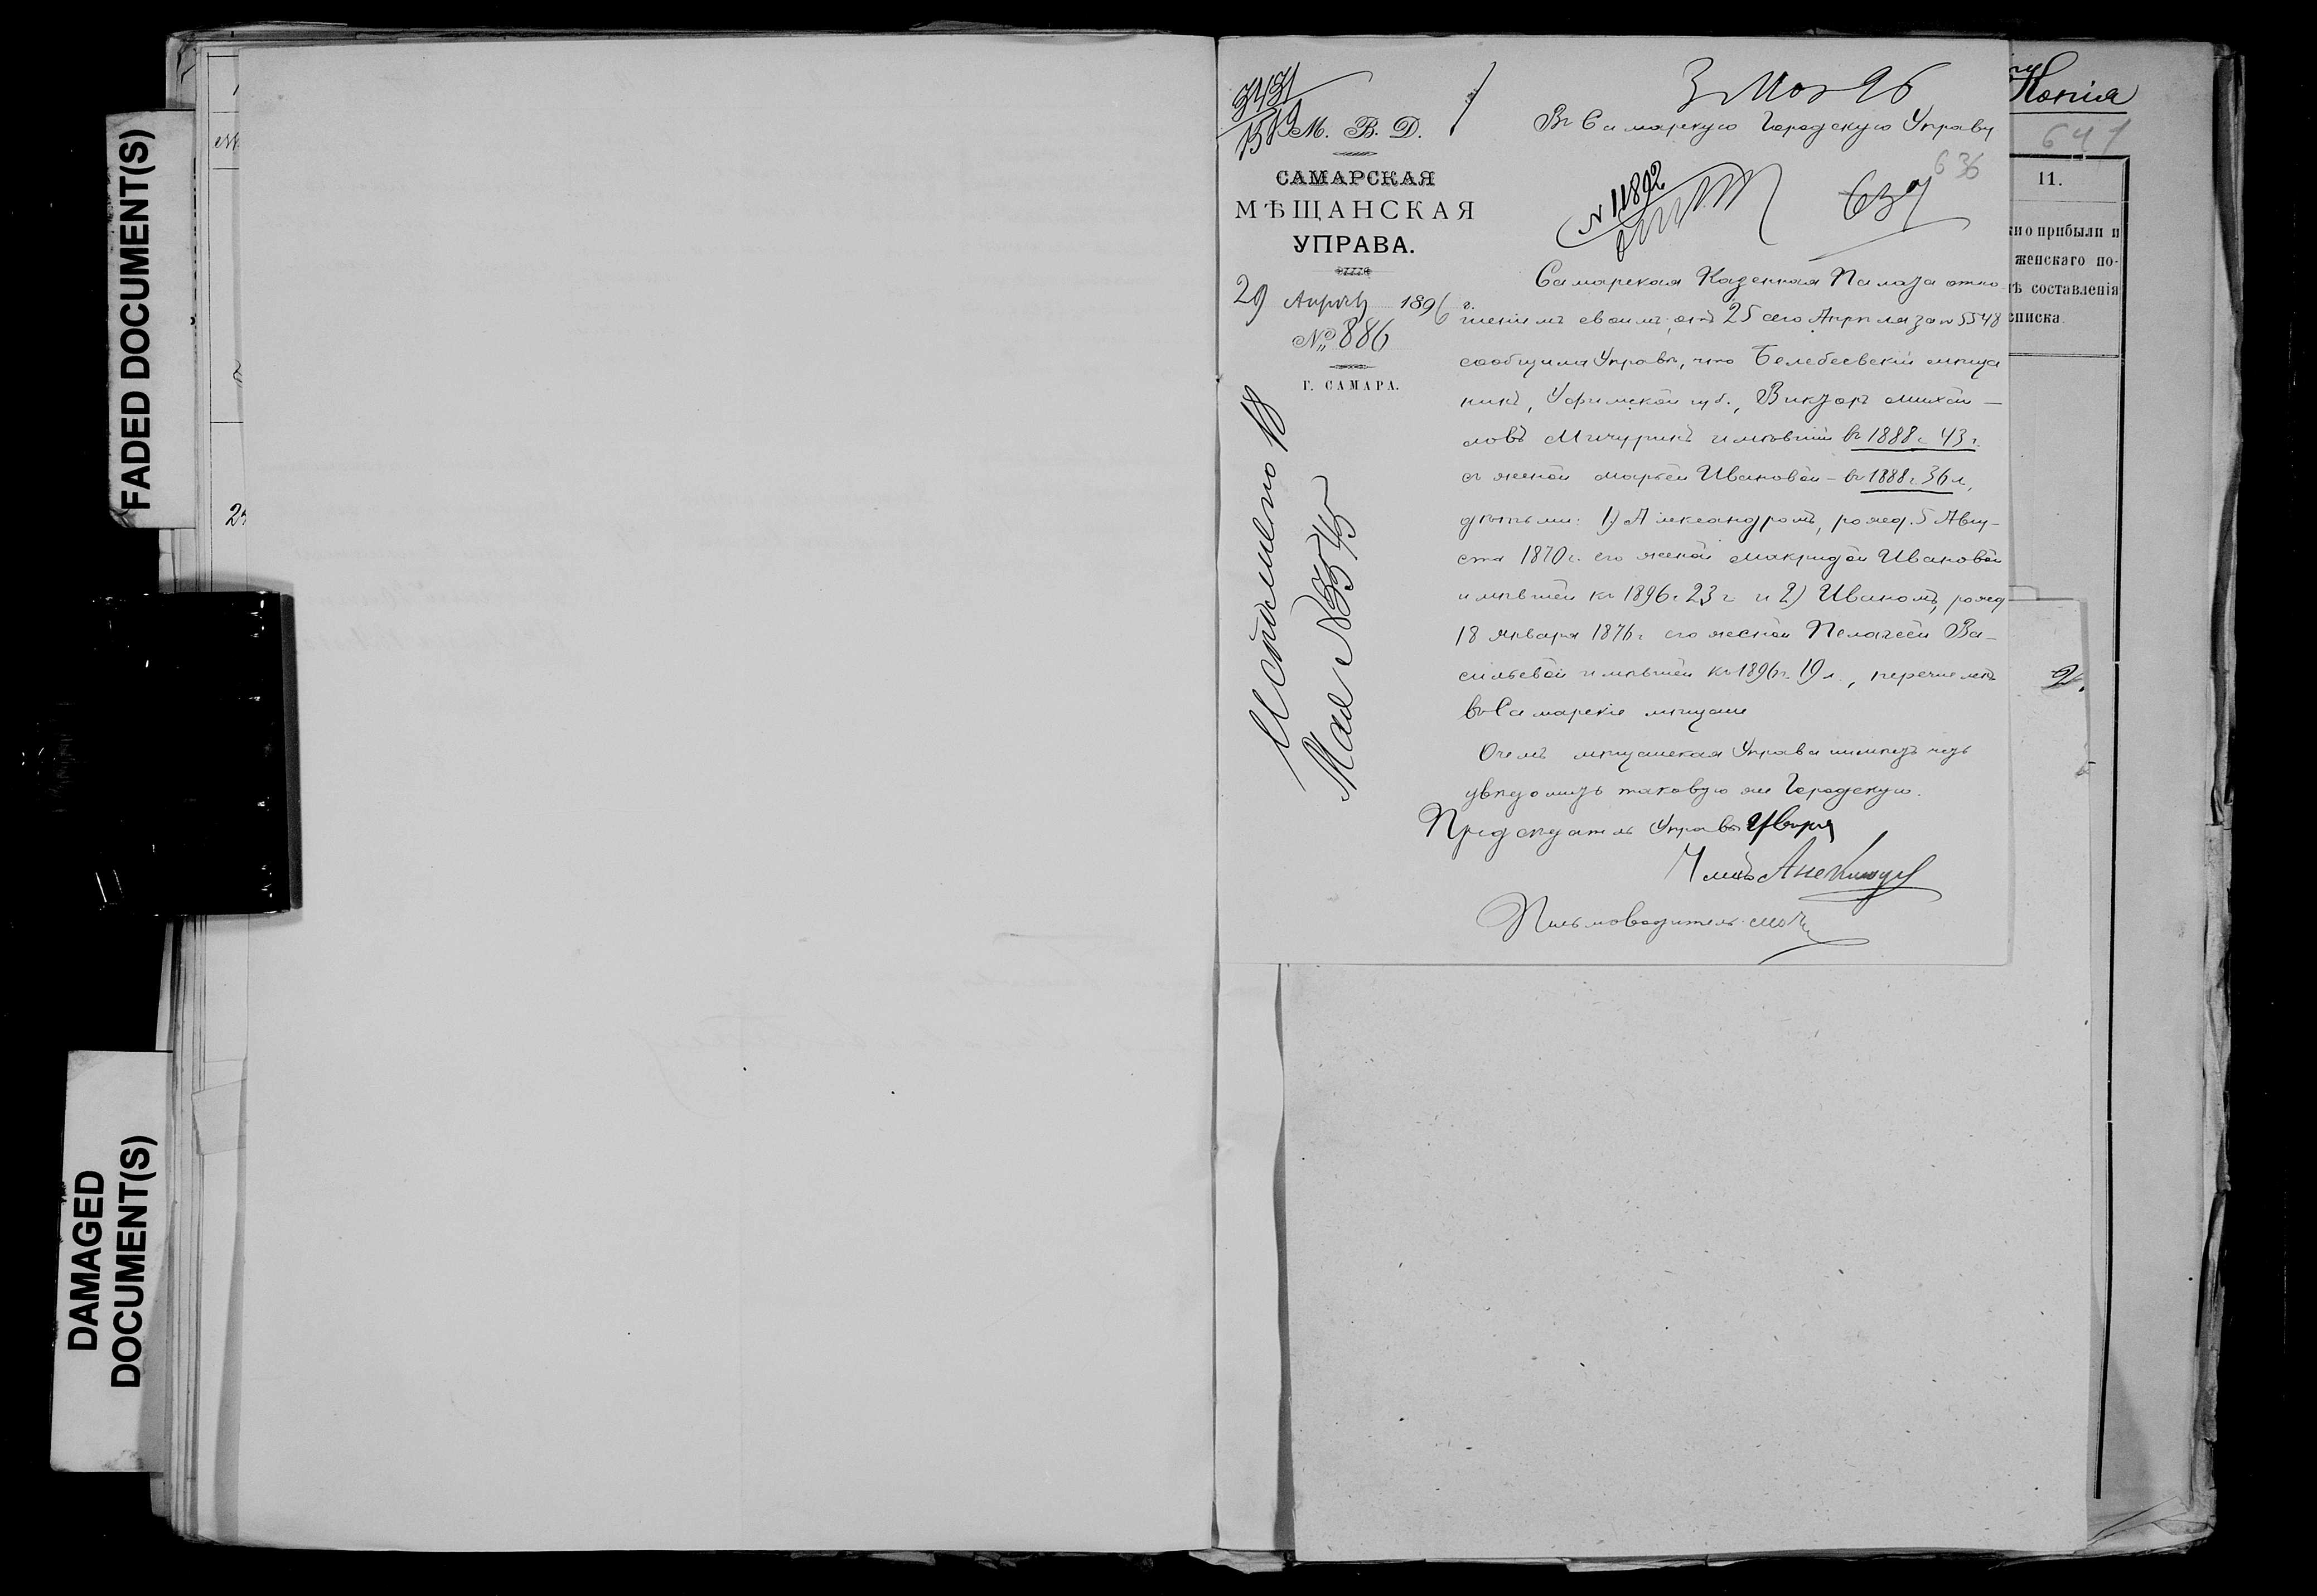 FADED DOCUMENT(S)
DAMAGED
DOCUMENT(S)
М. В. Д.
САМАРСКАЯ
МѢЩАНСКАЯ
УПРАВА.
29 Апрѣля 1896 г.
№ 886
Г. САМАРА.
Исполнено 18
Мая № 3545
3 Мая 96
Въ Самарскую Городскую Управу
№ 11892
636
Самарская Казенная Палата отно-
шеніемъ своимъ, отъ 25 сего Апрѣля за № 5548
сообщила Управѣ, что Белебеевскій мѣща
нинъ, Уфимской губ., Викторъ Михай-
ловъ Мичуринъ имѣвшій въ 1888 г. 43 г.
съ женой Марьей Ивановой - въ 1888 г. 36 л.,
дѣтьми: 1) Александромъ, рожд. 5 Авгу-
ста 1870 г. его женой Макридой Ивановой
имѣвшей къ 1896 г. 23 г. и 2) Иваномъ, рожд
18 января 1876 г его женой Пелагеей Ва-
сильевой имѣвшей къ 1896 г. 19 л., перечисленъ
въ Самарскіе мѣщане
О чемъ мѣщанская Управа имѣетъ честь
увѣдомить таковую же Городскую.
Предсѣдатель Управы
Членъ
Письмоводитель
Копія
641
11.
но прибыли и
женскаго по-
ѣ составленія
списка.
2.